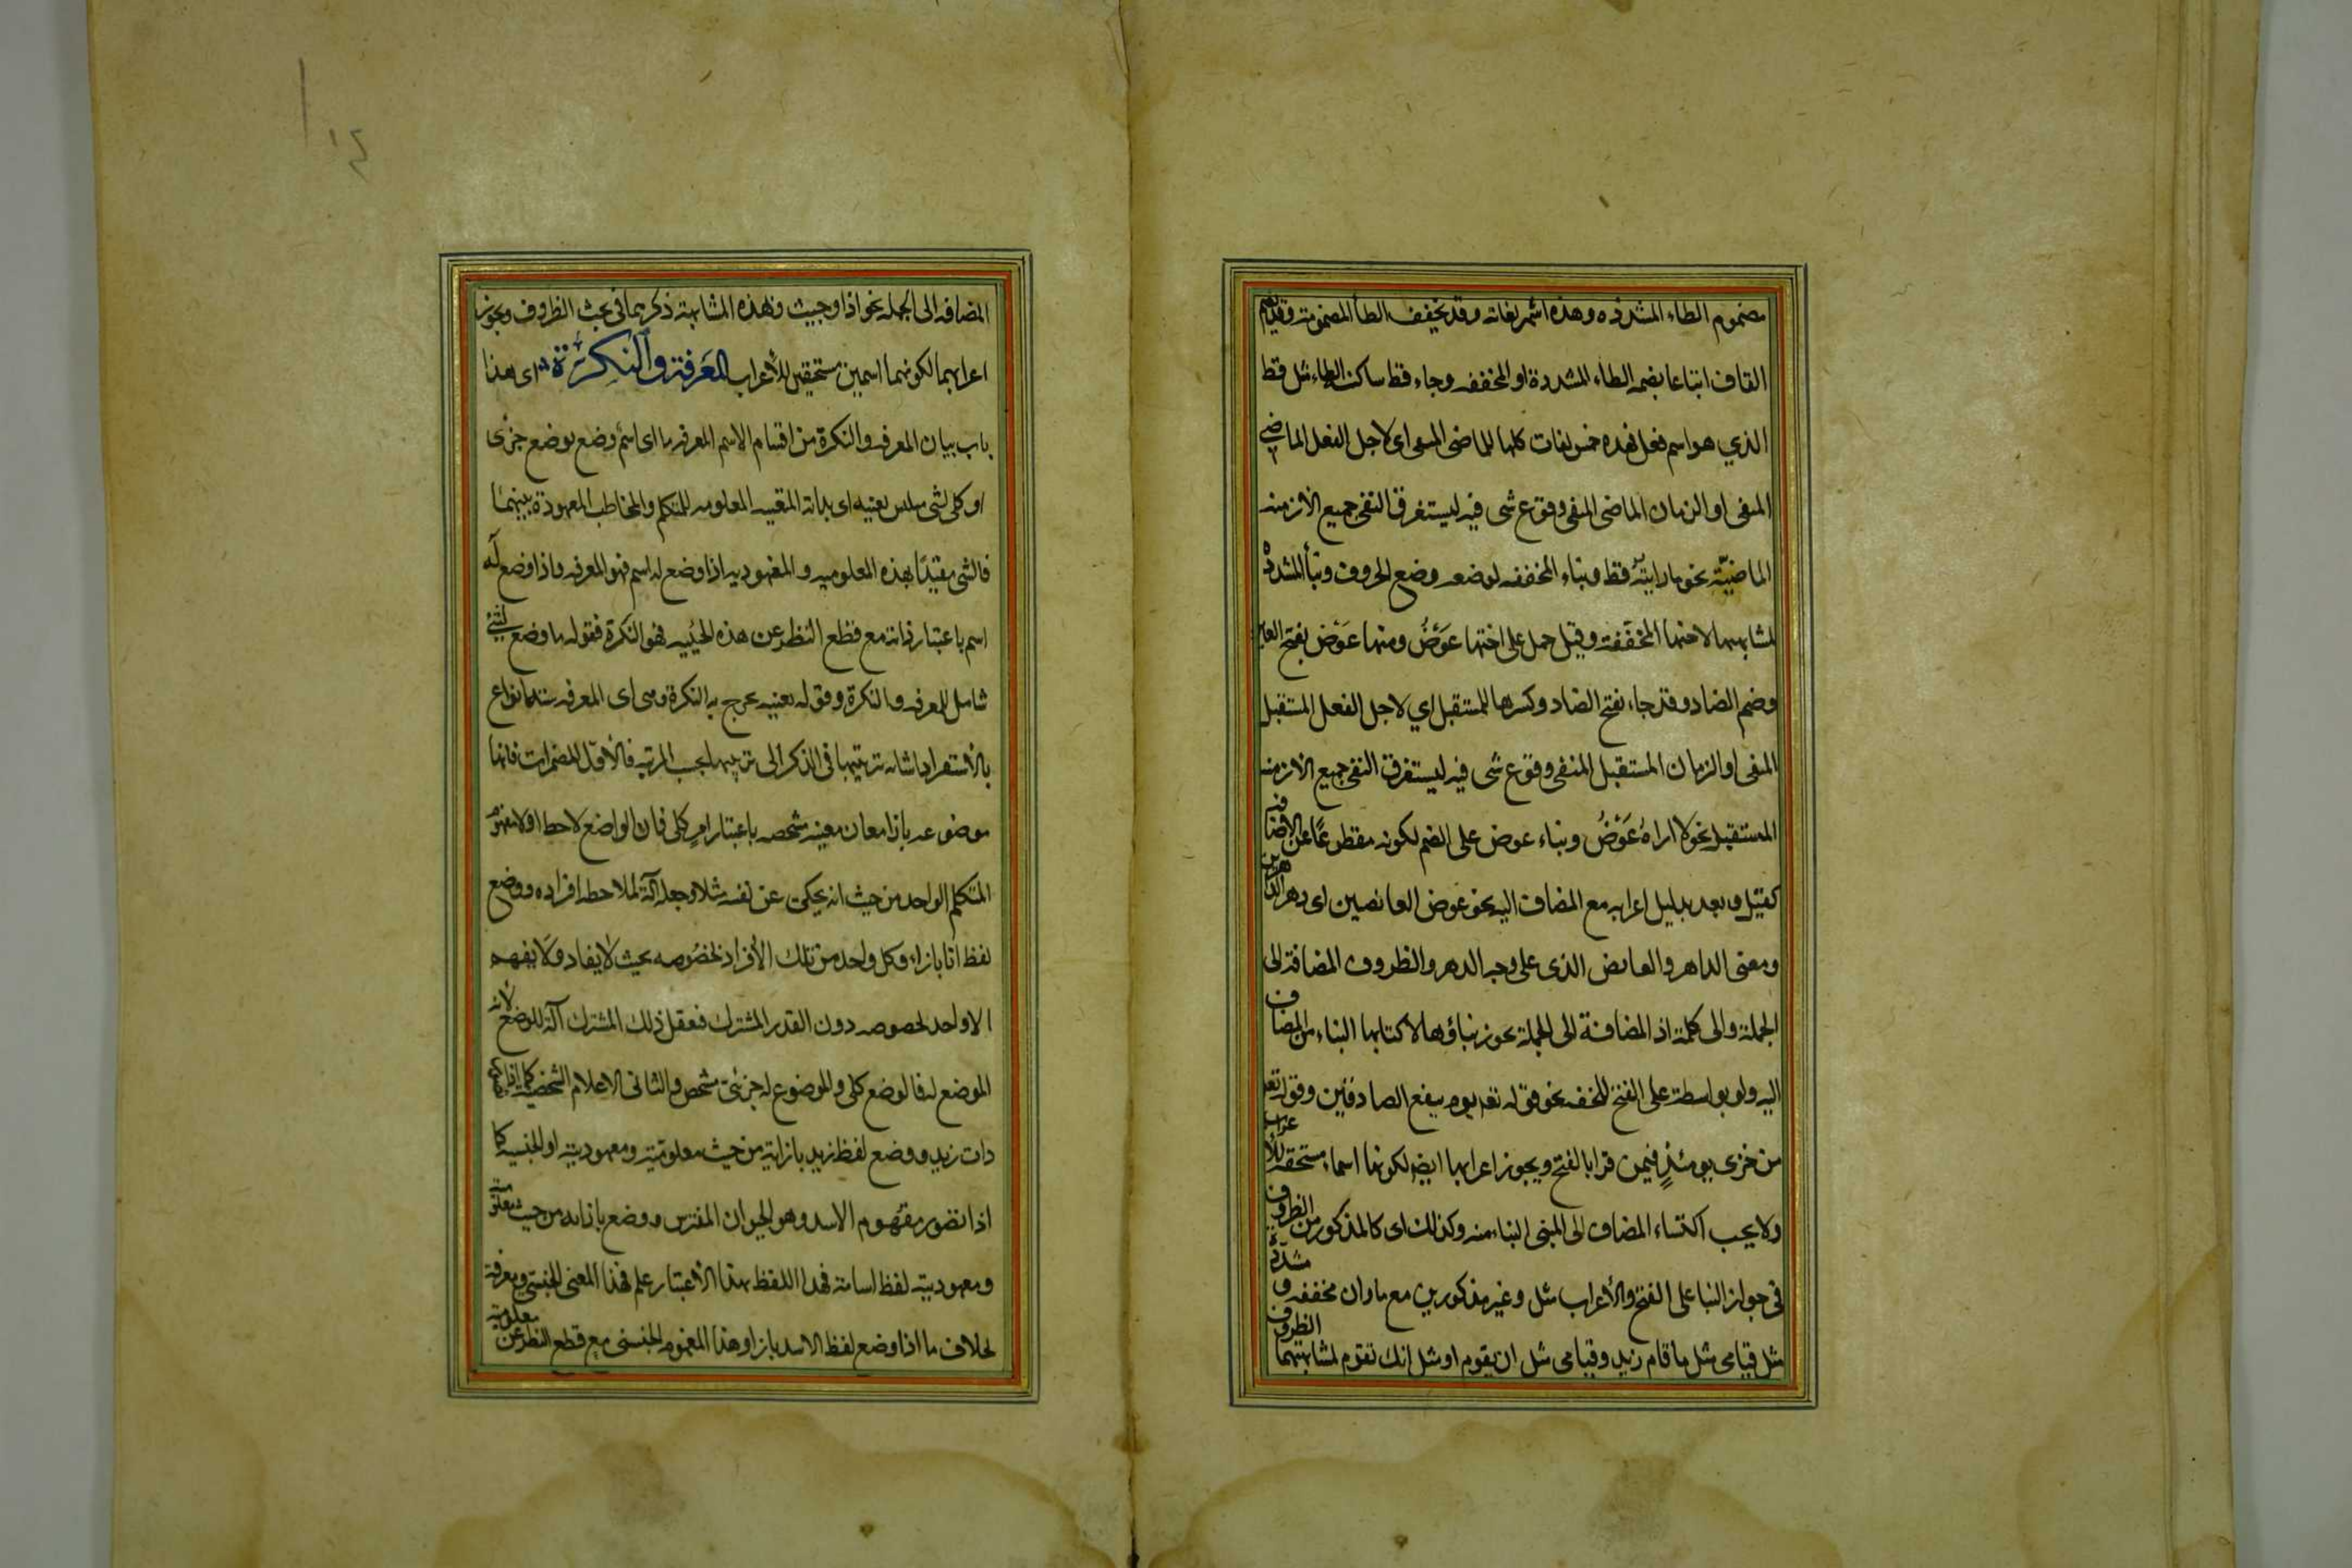 مضموم الطاء المشددة وهذه اشهر لغاته وقد يخفف الطأ المضمومة وقد يضم
القاف اتباعا بضمه الطاء المشددة او المخففه وجاء قط ساكن الطاء مثل قط
الذي هو اسم فعل فهذه خمس لغات كلها للماضى المنفى اى لاجل الفعل الماضي
المنفى او الزمان الماضى المنفى وقوع شى فيه ليستغرق النفى جميع الازمنه
الماضيّة نحو مارايته قط وبناء المخففه لوضعه وضع الحروف وبنأ المشددة
لمشابهتها لاختها المخفّفة وقيل حمل على اختها عَوْضُ ومنها عَوْض بفتح العين
وضم الضاد وقد جاء بفتح الضاد وكسرها للمستقبل اي لاجل الفعل المستقبل
المنفى او الزمان المستقبل المنفى وقوع شى فيه ليستغرق النفى جميع الازمنه
المستقبله نحو لا اراهُ عَوْضُ وبناء عوض على الضم لكونه مقطوعًا عن الاضافه
كقبل وبعد بدليل اعرابه مع المضاف اليه نحو عوض العائضين اى دهر الداهرين
ومعنى الداهر والعايض الذى على وجه الدهر والظروف المضافة الى
الجملة والى كلمة اذ المضافة الى الجملة يجوز بناؤها لاكتسابها البناء من المضاف
اليه ولو بواسطة على الفتح للخفه نحو قوله تعه يوم ينفع الصادقين وقوله تعه
من خزى يومئذٍ فيمن قرا بالفتح ويجوز اعرابها ايضا لكونها اسماء مستحقه للاعراب
ولا يجب اكتساء المضاف الى المبنى البناء منه وكذلك اى كالمذكور من الظروف
فى جواز البنا على الفتح والأعراب مثل وغير مذكورين مع ما وان مخففه و مشدّدة
مثل قيامى مثل ما قام زيد وقيامى مثل ان يقوم او مثل انك تقوم لمشابهتهما الظروف
المضافه الى الجمله نحو اذا وحيث ولهذه المشابهة ذكرهما فى بحث الظروف ويجوز
اعرابهما لكونهما اسمين مستحقين للأعراب المَعرفة والنكِرَة اى هذا
باب بيان المعرفه والنكرة من اقسام الاسم المعرفه ما اى اسم وضع بوضع جزى
او كلى لشى بعينه اى بذاته المعلومه للمتكلم والمخاطب المعهودة بينهما
فالشى مقيدًا بهذه المعلوميه والمعهوديه اذا وضع له اسم فهو المعرفه واذا وضع له
اسم باعتبار ذاته مع قطع النظر عن هذه الحيثيه فهو النكرة فقوله ما وضع لشئ
شامل للمعرفه والنكرة وقوله بعينه يخرج به النكرة وهى اى المعرفه ستة انواع
بالأستقراء اشار ترتيبها فى الذكر الى ترتيبها بحسب المرتبه فالأوّل المضمرات فانها
موضوعه بازا معان معينه مشخصه باعتبار امرٍ كلى فان الواضع لاحظ اولا مفهوم
المتكلم الواحد من حيث انه يحكى عن نفسه مثلا وجعله آلة لملاحظه افراده ووضع
لفظ انا بازاء كل واحد من تلك الأفراد بخصوصه بحيث لا يفاد ولا يفهم
الا واحد بخصوصه دون القدر المشترك فتعقل ذلك المشترك آلة للوضع لا نه
الموضع له فالوضع كلى والموضوع له جزئى مشخص والثانى الاعلام الشخصيه كما اذا
ذات زيد ووضع لفظ زيد بازائه من حيث معلوميته ومعهوديته او الجنسيه كما
اذا تصور مفهوم الاسد وهو الحيوان المفترس ووضع بازائه من حيث معلوميته
ومعهوديته لفظ اسامة فهذا اللفظ بهذا الأعتبار علم لهذا المعنى الجنسى ومعرفة
بخلاف ما اذا وضع لفظ الاسد بازاء هذا المفهوم الجنسى مع قطع النظر عن معلوميته